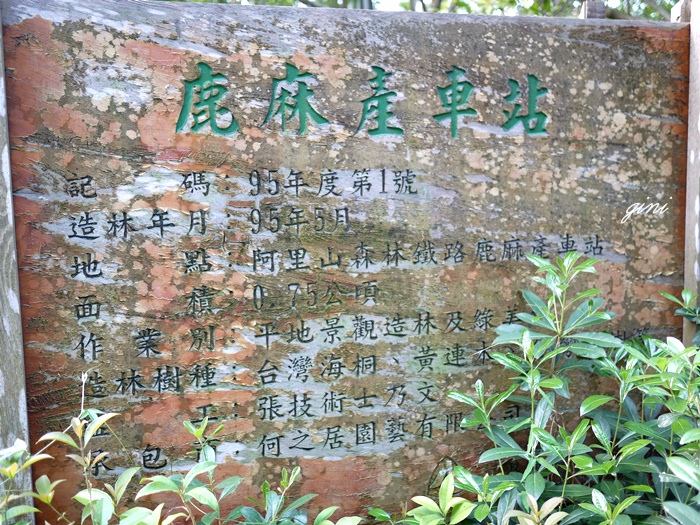 鹿麻產車站
記 碼：95年度第1號
造林年月：95年5月
gini
地 點：阿里山森林鐵路鹿麻產車站
面 積：0.75公頃
作 業 別：平地景觀造林及綠美
造林樹種：台灣海桐、黃連木
工：張技術士乃文
包：何之居園藝有限 司